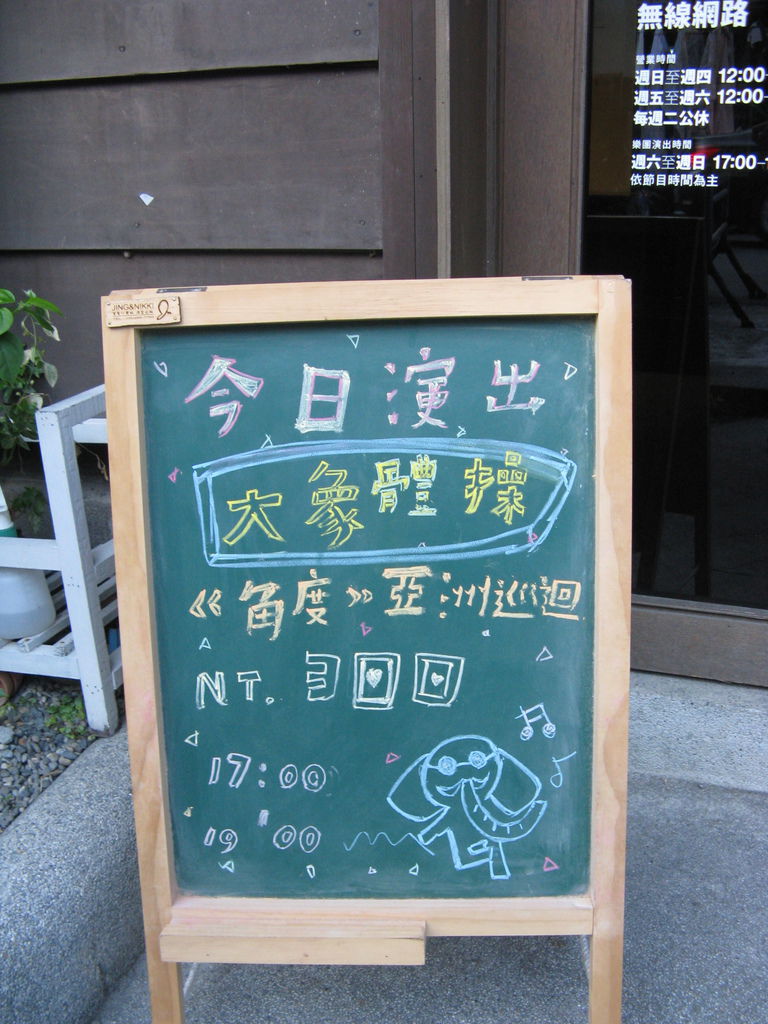 無線網路
營業時間
週日至週四 12:00-
週五至週六 12:00-
每週二公休
樂團演出時間
週六至週日 17:00-
依節目時間為主
JING&NIKKI
今日演出
大象體操
《角度》亞洲巡迴
NT. 300
17:00
19:00